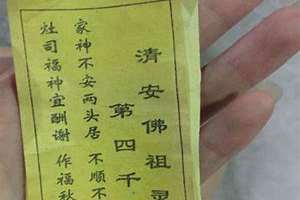 清安佛祖灵
第四千
家神不安两头居 不顺不
灶司福神宜酬谢 作福秋